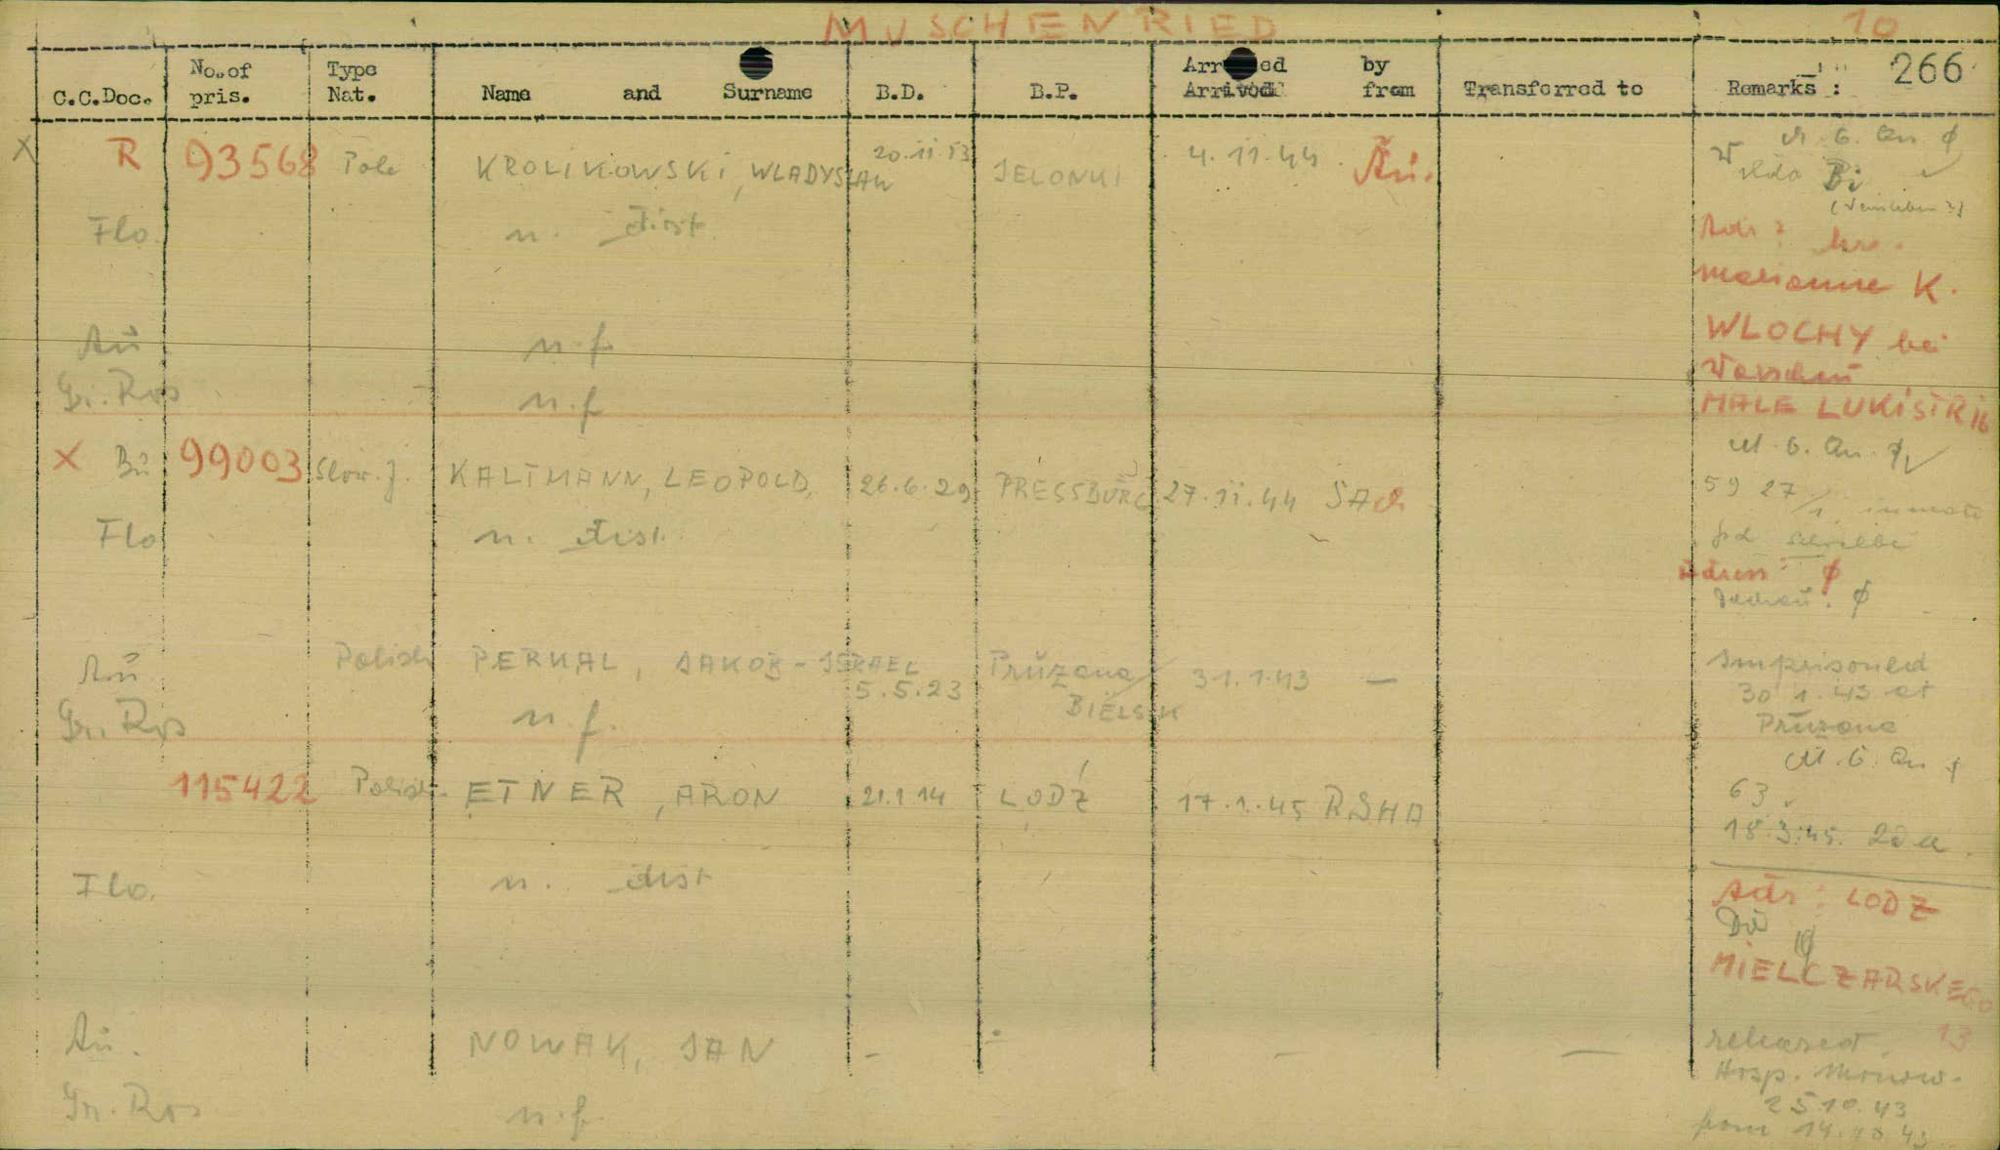 MUSCHENRIED 10
266
C.C.Doc. No. of pris. Type Nat. Name and Surname B.D. B.P. Arrested by Arrived from Transferred to Remarks :
X R 93568 Pole KROLIKOWSKI, WLADYSLAW 20.11. JELONKI 4.11.44 Au.
Bi
Flo. n. dist.
Adr ?
Marianne K.
Au. n.f.
WLOCHY bei
Warschau
Gr. Ros n.f.
MALE LUKISTR 16
X Bu 99003 Slow. J. KALTMANN, LEOPOLD, 26.6.29 PRESSBURG 27.11.44 SACH
59 27/1
Flo n. dist.
Adress : ϕ
Dachau : ϕ
Au Polish PERKAL, JAKOB-ISRAEL 5.5.23 Pružana / BIELSK 31.1.43 —
Imprisoned
30 1.43 at
Pružana
Gr. Ros n.f.
115422 Polish ETNER, ARON 21.1 14 LODŹ 17.1.45 RSHA
63
18.3.45.
Flo. n. dist
Adr : LODZ
MIELCZARSKEGO
13
Au. NOWAK, JAN - - — —
released
Hosp. Monow.
25.10.43
from 14.10.43
Gr. Ros n.f.